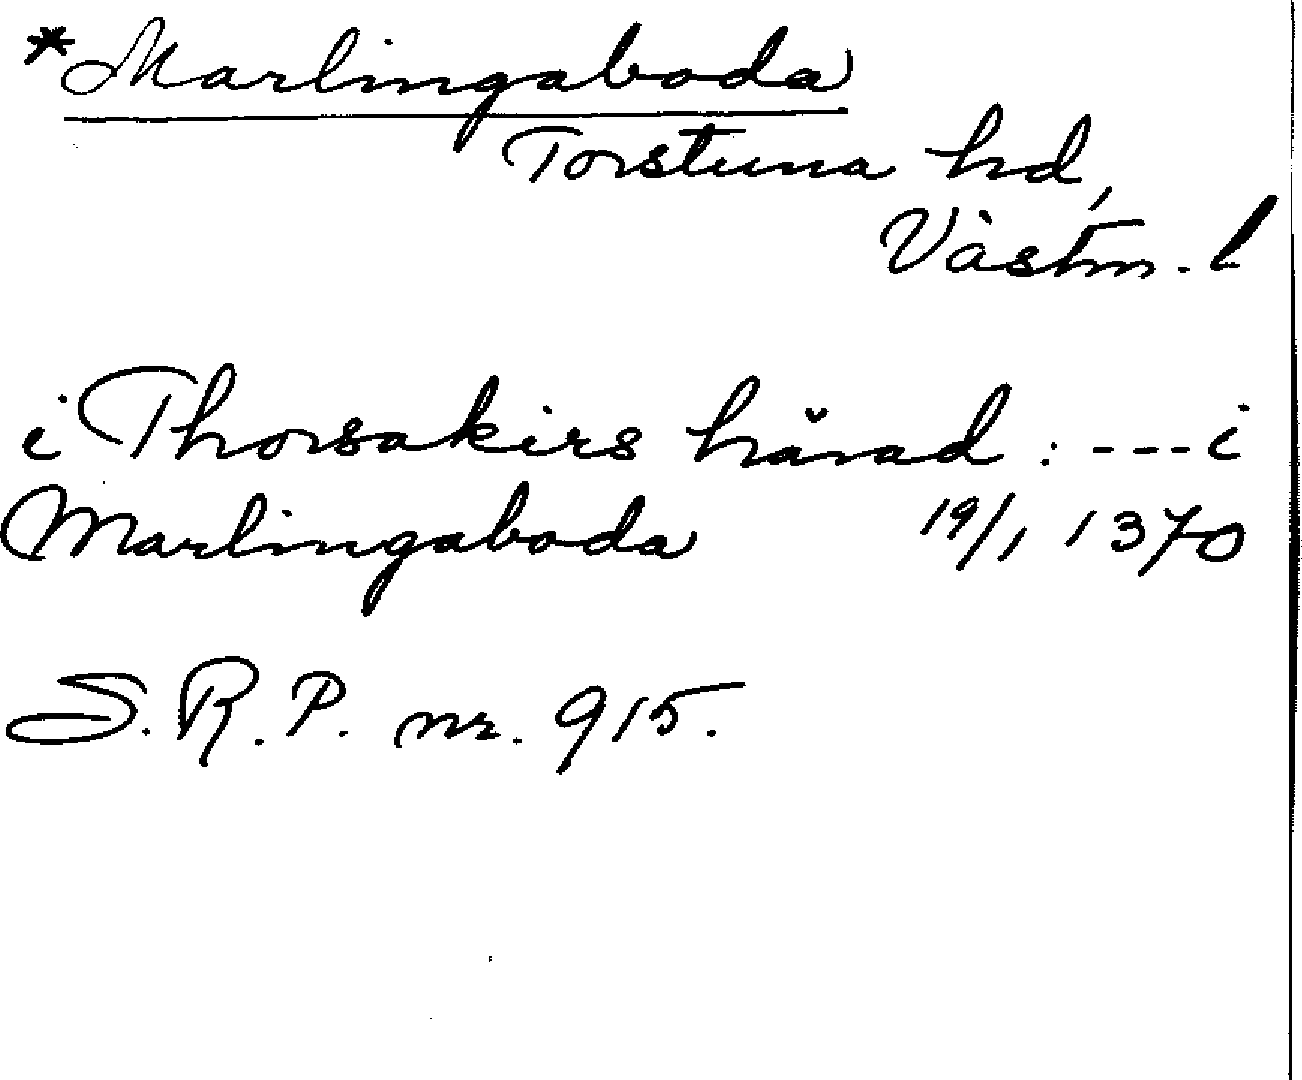 *Marlingaboda
Torstuna hd,
Västm. l
i Thorsakirs härad : --- i
Marlingaboda 19/1 1370
S.R.P. nr. 915.